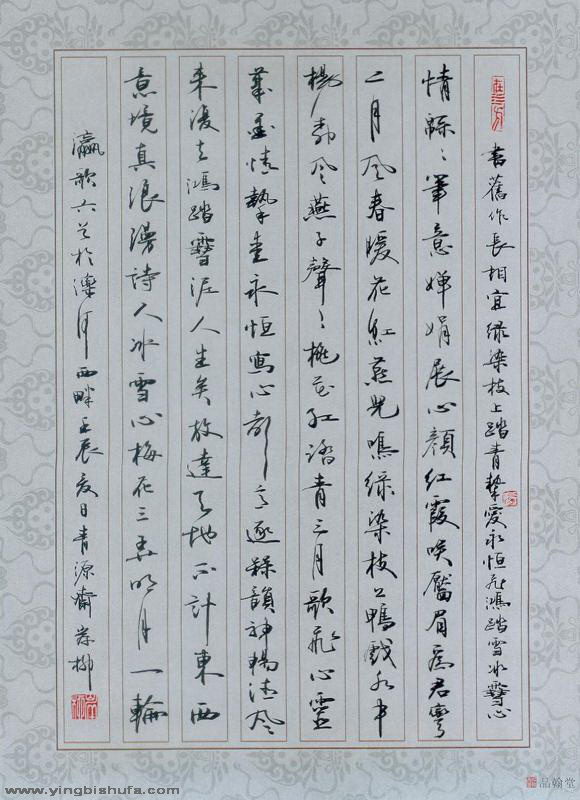 書舊作長相宜綠染枝上踏青摯愛永恒飛鴻踏雪冰雪心
情緜緜筆意嬋娟展心顏紅霞笑靨眉為君彎
二月風春暖花紅燕兒鳴綠染枝上鴨戲水中
楊柳風燕子聲聲桃花紅踏青三月歌飛心靈
摯愛永恒寫心
來復去鴻踏雪泥人生矣放達天地不計東西
意境真浪漫詩人冰雪心梅花三弄明月一輪
瀛歌六首於灤河西畔壬辰夏日青源齋岩柳
www.yingbishufa.com
品翰堂